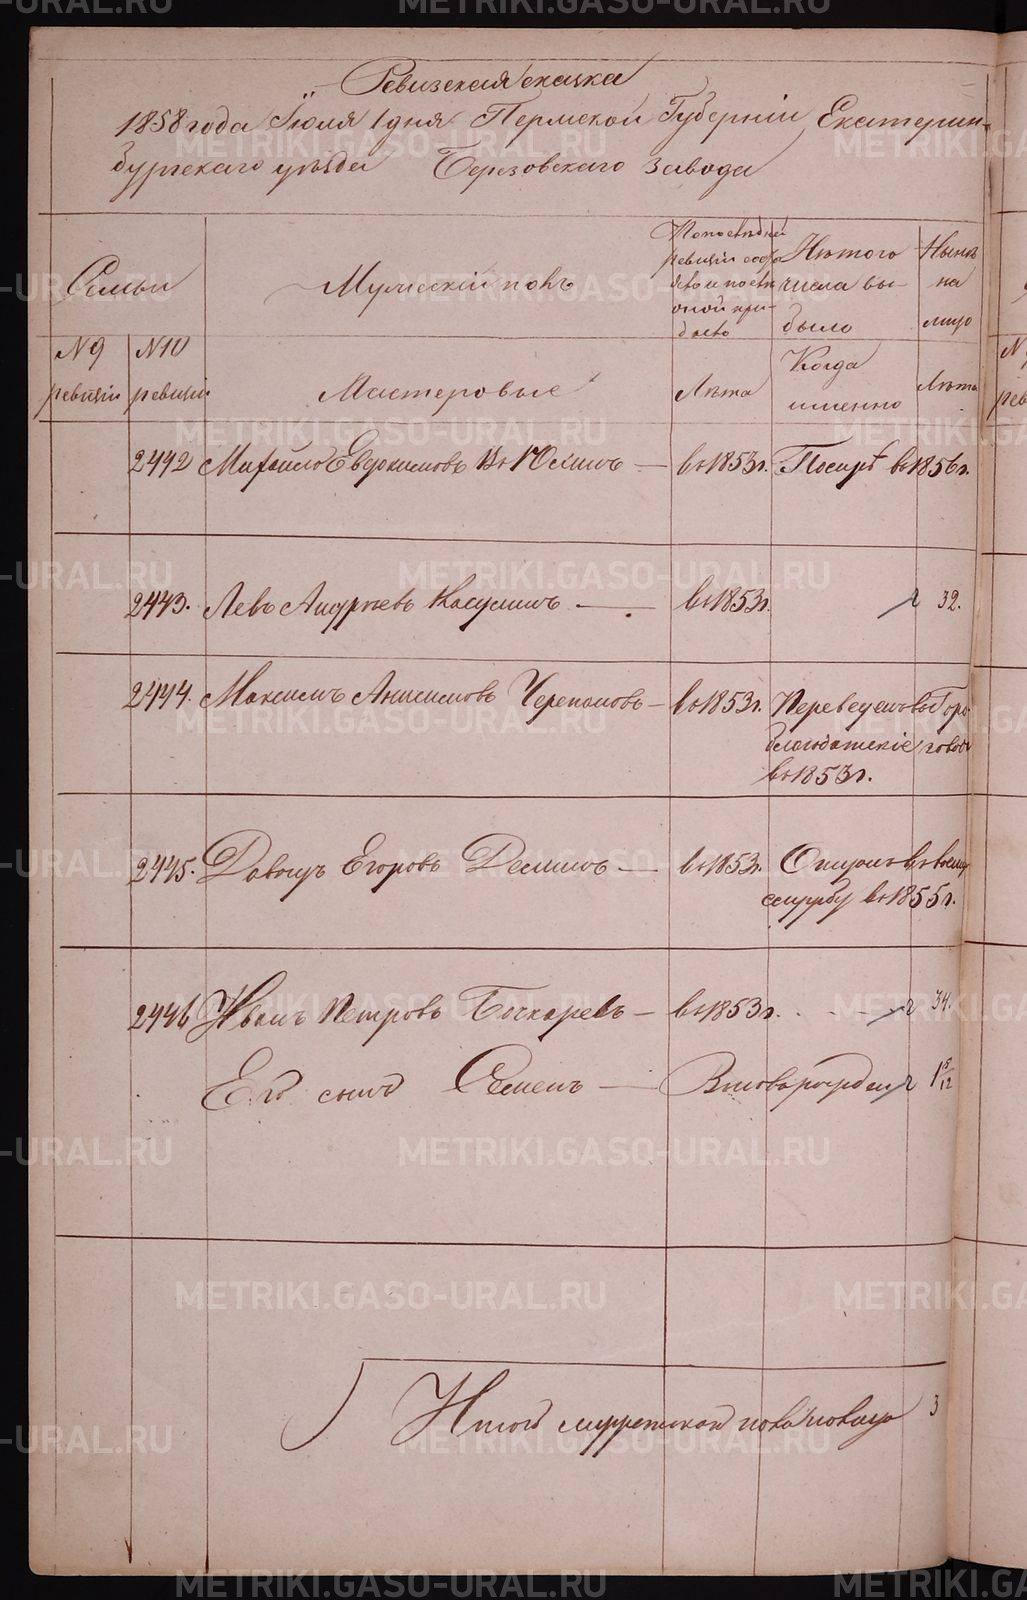 Ревизская сказка
1858 года Іюля 1 дня Пермской Губерніи Екатерин-
бургскаго уѣзда Березовскаго завода
Семьи
Мужескій полъ
По послѣдней
ревизіи состо
яло и послѣ
оной при-
было
Изъ того
числа вы-
было
Нынѣ
на
лицо
№ 9
ревизіи
№ 10
ревизіи
Мастеровые
Лѣта
Когда
именно
Лѣта
2442 Михайло Евдокимовъ въ 1853 г. въ 1856 г.
2443. Левъ Андреевъ въ 1853 г. 32.
2444. Максимъ Анисимовъ Черепановъ въ 1853 г. Переведенъ въ Горо
благодатскіе заводы
въ 1853 г.
2445. Давыдъ Егоровъ Деминъ въ 1853 г. Отданъ въ военную
службу въ 1855 г.
2446 Иванъ Петровъ Бочкаревъ въ 1853 г. 34.
Его сынъ Семенъ Вновь рожден 1 5/12
Итого мужескаго пола налицо 3
METRIKI.GASO-URAL.RU